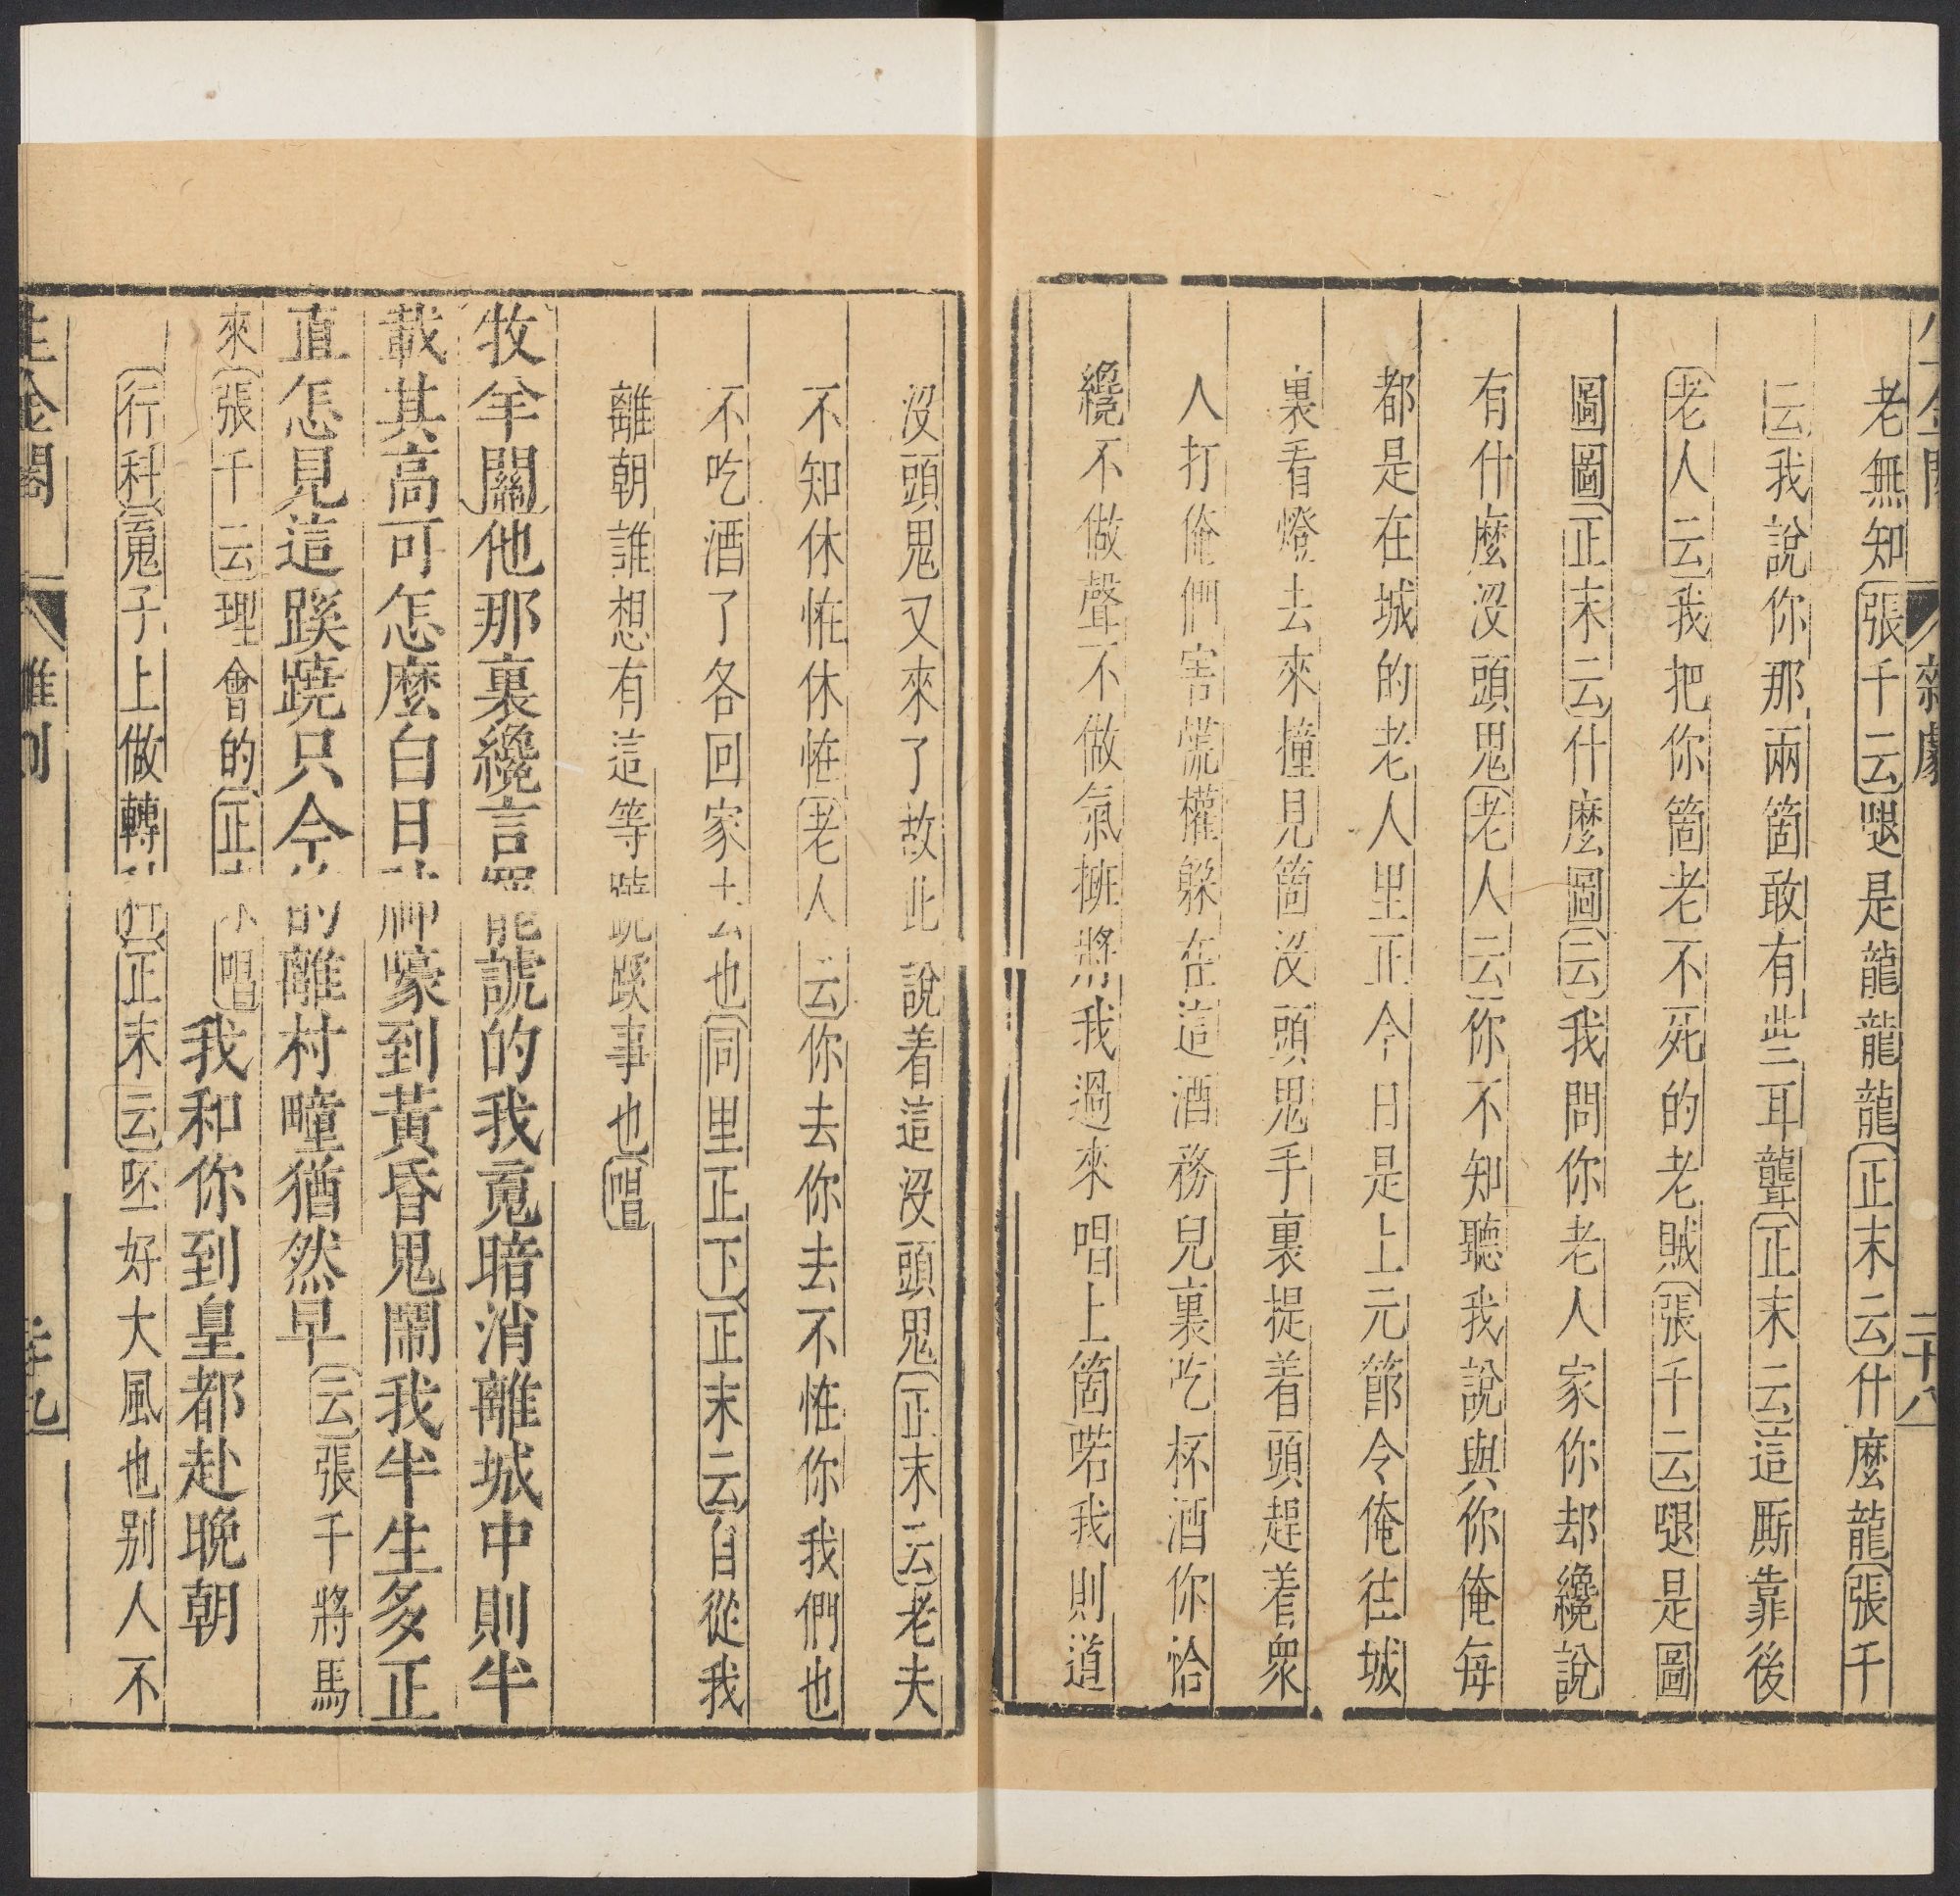 生金閣 雜劇 二十八
老無知張千云嗯是龍龍龍正末云什麼龍張千
云我說你那兩箇敢有些耳聾正末云這厮靠後
老人云我把你箇老不死的老賊張千云嗯是圖
圖圖正末云什麼圖云我問你老人家你却纔說
有什麼沒頭鬼老人云你不知聽我說與你俺每
都是在城的老人里正今日是上元節令俺往城
裏看燈去來撞見箇沒頭鬼手裏提着頭趕着衆
人打俺們害慌權躲在這酒務兒裏吃杯酒你恰
纔不做聲不做氣摭將我過來唱上箇喏我則道
沒頭鬼又來了故此說着這沒頭鬼正末云老夫
不知休恠休恠老人云你去你去不恠你我們也
不吃酒了各回家去也同里正下正末云自從我
離朝誰想有這等蹺蹊事也唱
牧羊關他那裏纔言罷諕的我䰟暗消離城中則半
載其高可怎麼白日神嚎到黃昏鬼鬧我半生多正
直怎見這蹊蹺只今的離村疃猶然早云張千將馬
來張千云理會的正末唱我和你到皇都赴晚朝
行科䰟子上做轉打正末云呸好大風也別人不
生金閣 雜劇 二十九